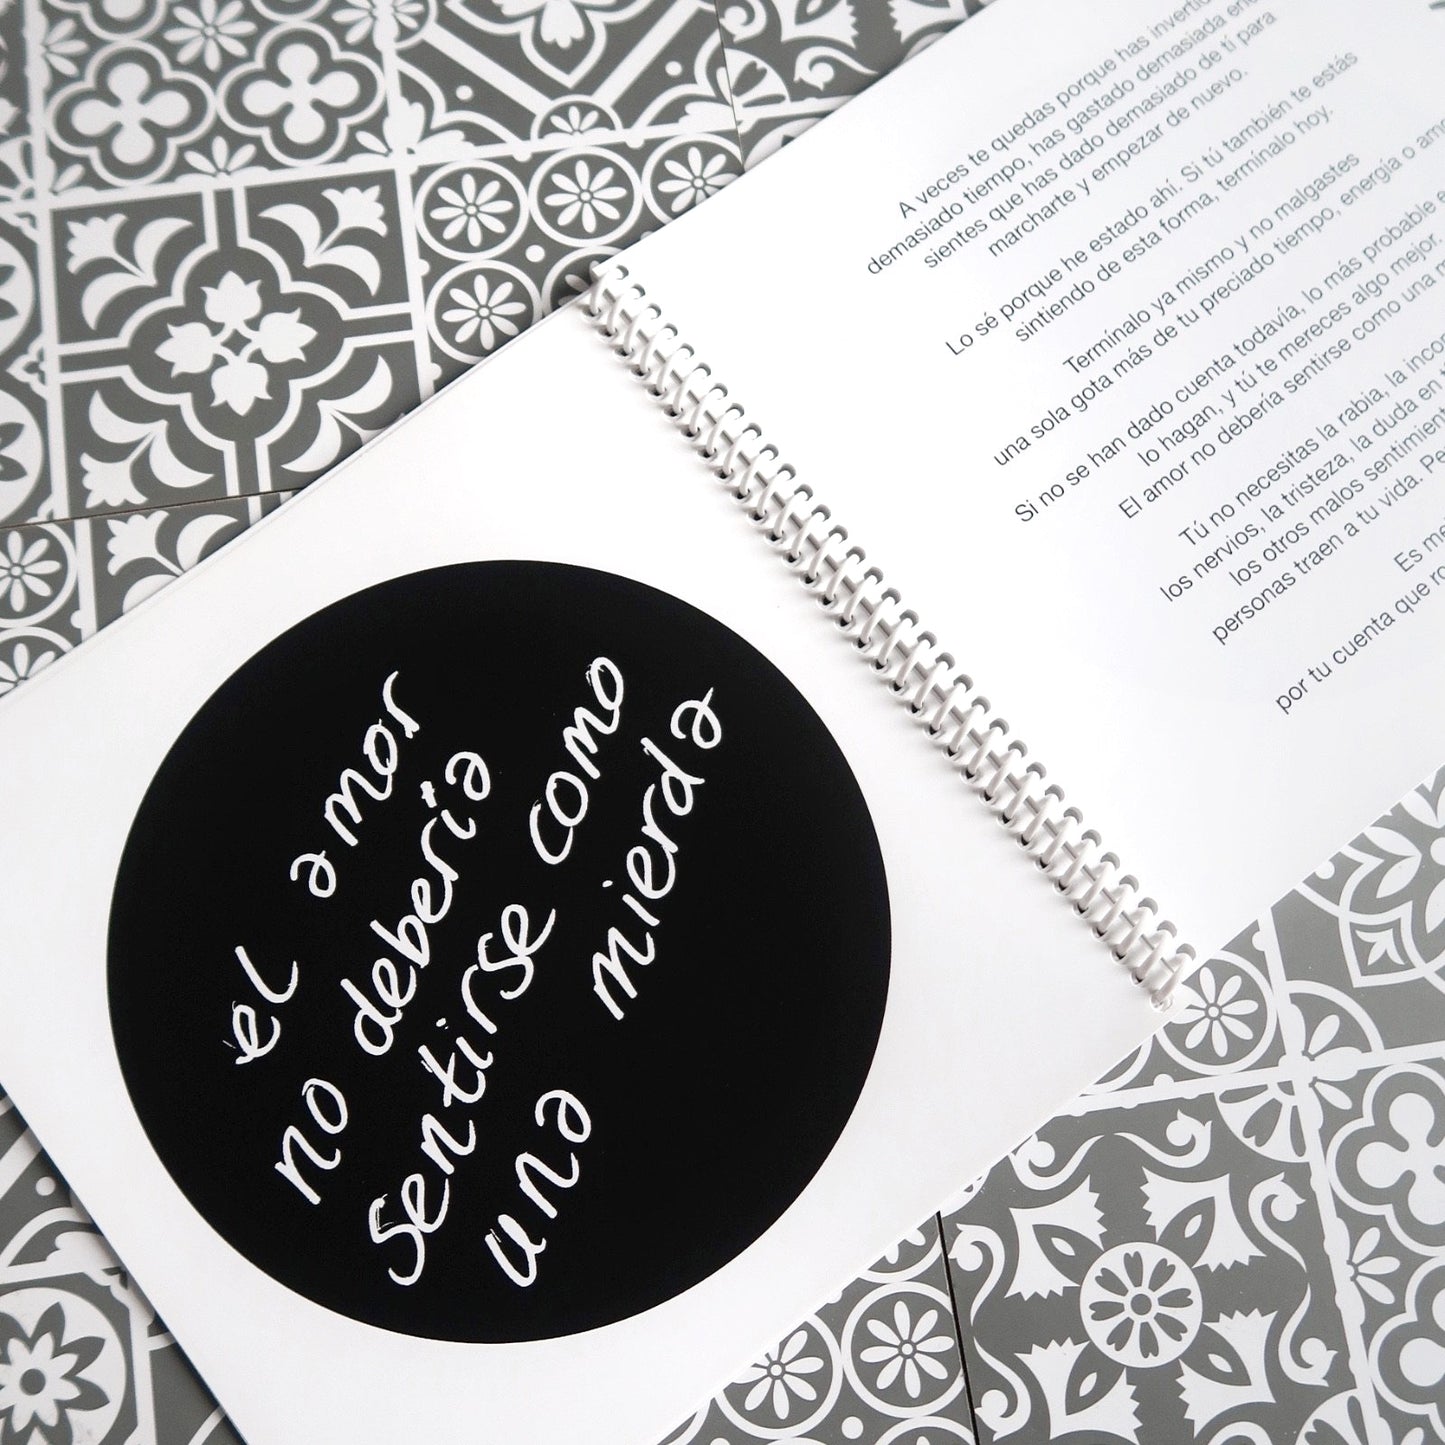 el amor
no debería
sentirse como
una mierda
A veces te quedas porque has
demasiado tiempo, has gastado demasiada
sientes que has dado demasiado de tí para
marcharte y empezar de nuevo.
Lo sé porque he estado ahí. Si tú también te estás
sintiendo de esta forma, termínalo hoy.
Termínalo ya mismo y no malgastes
una sola gota más de tu preciado tiempo, energía o
Si no se han dado cuenta todavía, lo más probable
lo hagan, y tú te mereces algo mejor.
El amor no debería sentirse como una
Tú no necesitas la rabia, la
los nervios, la tristeza, la duda en
los otros malos
personas traen a tu vida.
Es
por tu cuenta que